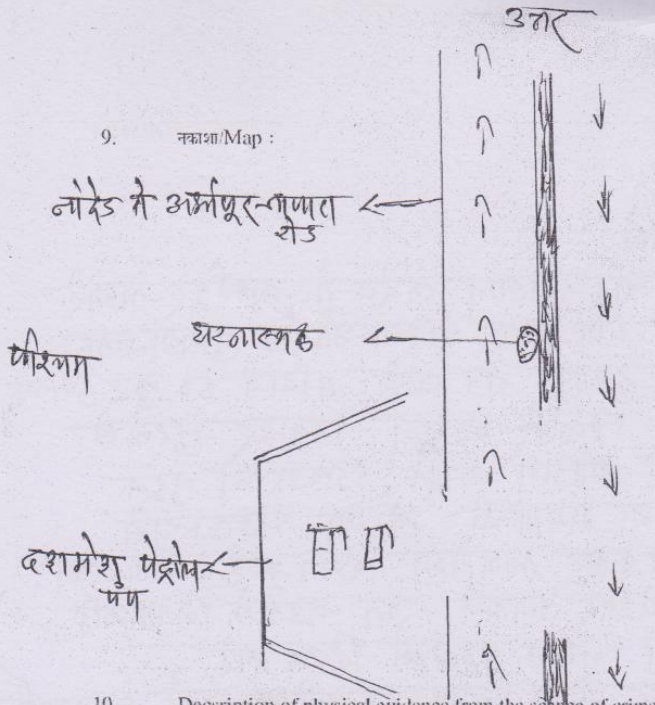 उत्तर
9. नकाशा/Map :
नांदेड ते अर्धापूर-
रोड
घटनास्थळ
पश्चिम
दशमेश पेट्रोल
पंप
10. Description of physical evidence from the scene of crime